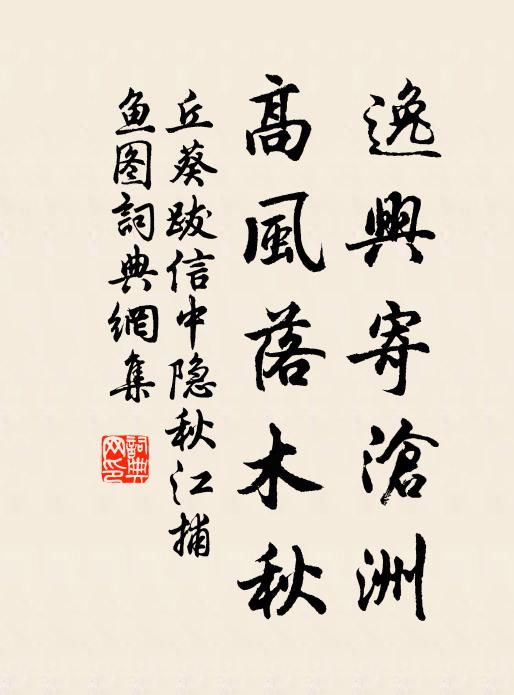 逸興寄滄洲
高風落木秋
丘葵跋信中隐秋江捕
鱼图詞典網集
詞典网印